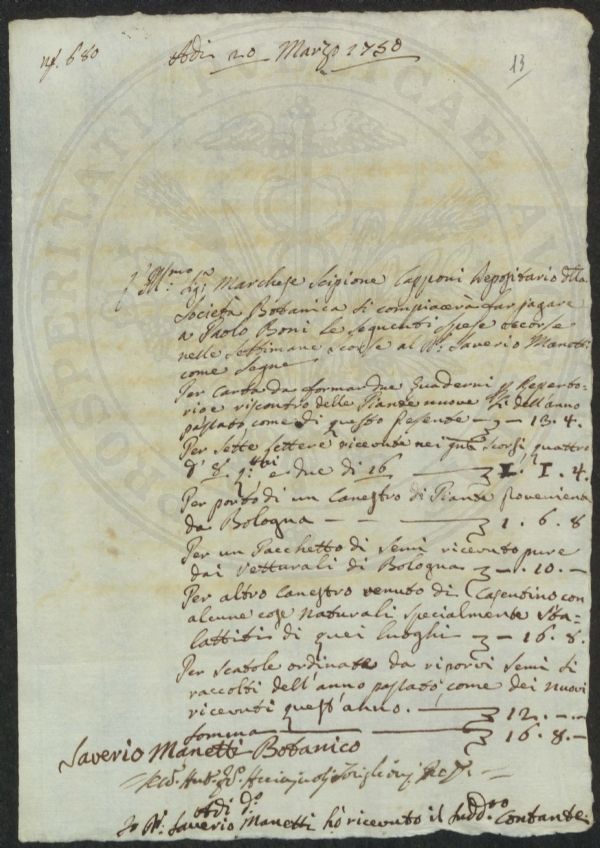 N°. 680
Adi 20 Marzo 1750
13
Ill.mo Sig.r Marchese Scipione Capponi Depositario della
Società Botanica si compiacerà far pagare
a Paolo Boni le seguenti spese occorse
nelle settimane scorse al D.r Saverio Manetti
come segue
Per Carta da formar due Quaderni p Reperto-
rio e riscontro delle Piante nuove sì dell'anno
passato come di questo presente — 13. 4.
Per sette lettere ricevute nei scorsi, quattro
d' 8. q.tti e due di 16 — 1. 1. 4.
Per porto di un Canestro di Piante proveniente
da Bologna — 1. 6. 8
Per un Pacchetto di Semi ricevuto pure
dai Vetturali di Bologna — 10. —
Per altro canestro venuto di Casentino con
alcune cose naturali specialmente Sta-
lattiti di quei luoghi — 16. 8.
Per scatole ordinate da riporvi semi sì
raccolti dell'anno passato, come dei nuovi
ricevuti quest'anno. — 12. — —
Somma — 16. 8. —
Saverio Manetti Botanico
Adi d.o
Io D.r Saverio Manetti hò ricevuto il sudd.o Contante
PROSPERITATI PUBLICAE